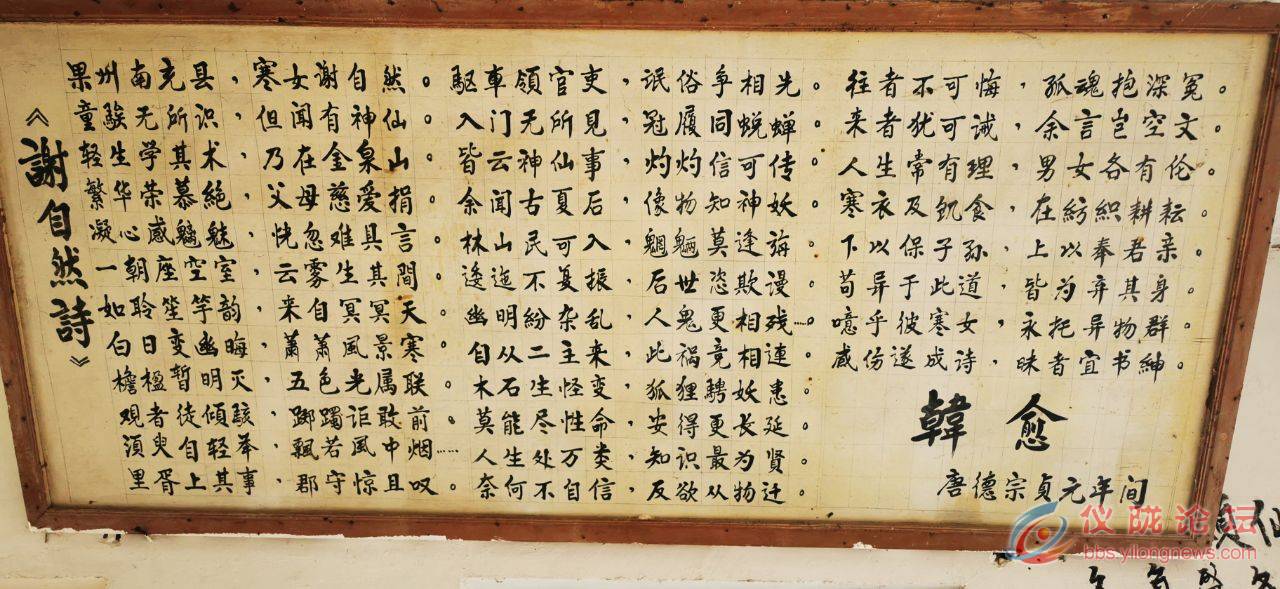 《謝自然詩》
果州南充县，寒女谢自然。
童騃无所识，但闻有神仙。
轻生学其术，乃在金泉山。
繁华荣慕絶，父母慈爱捐。
凝心感魑魅，恍忽难具言。
一朝座空室，云雾生其間。
如聆笙竽韵，来自冥冥天。
白日变幽晦，萧萧风景寒。
檐楹暂明灭，五色光属联。
观者徒傾骇，躑躅讵敢前。
湏臾自轻举，飘若风中烟……
里胥上其事，郡守惊且叹。
駆車領官吏，氓俗争相先。
入门无所見，冠履同蜕蝉。
皆云神仙事，灼灼信可传。
余闻古夏后，像物知神妖。
林山民可入，魍魎莫逢旃。
逶迤不复振，后世恣欺谩。
幽明紛杂乱，人鬼更相残……
自从二主来，此祸竞相連。
木石生怪变，狐狸騁妖患。
莫能尽性命，安得更长延。
人生处万类，知识最为贤。
奈何不自信，反欲从物迁。
往者不可悔，孤魂抱深冤。
来者犹可诫，余言岂空文。
人生常有理，男女各有伦。
寒衣及飢食，在紡織耕耘。
下以保子孙，上以奉君亲。
苟异于此道，皆为弃其身。
噫乎彼寒女，永托异物群。
感伤遂成诗，昧者宜书紳。
韓愈
唐德宗贞元年间
仪陇论坛
bbs.yilongnews.com